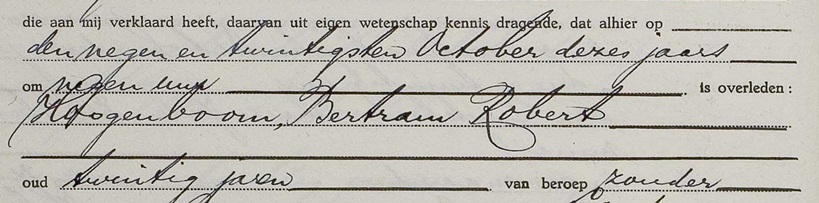 die aan mij verklaard heeft, daarvan uit eigen wetenschap kennis dragende, dat alhier op
den negen en twintigsten October dezes jaars
om negen uur is overleden:
Hoogenboom, Bertram Robert
oud twintig jaren van beroep zonder